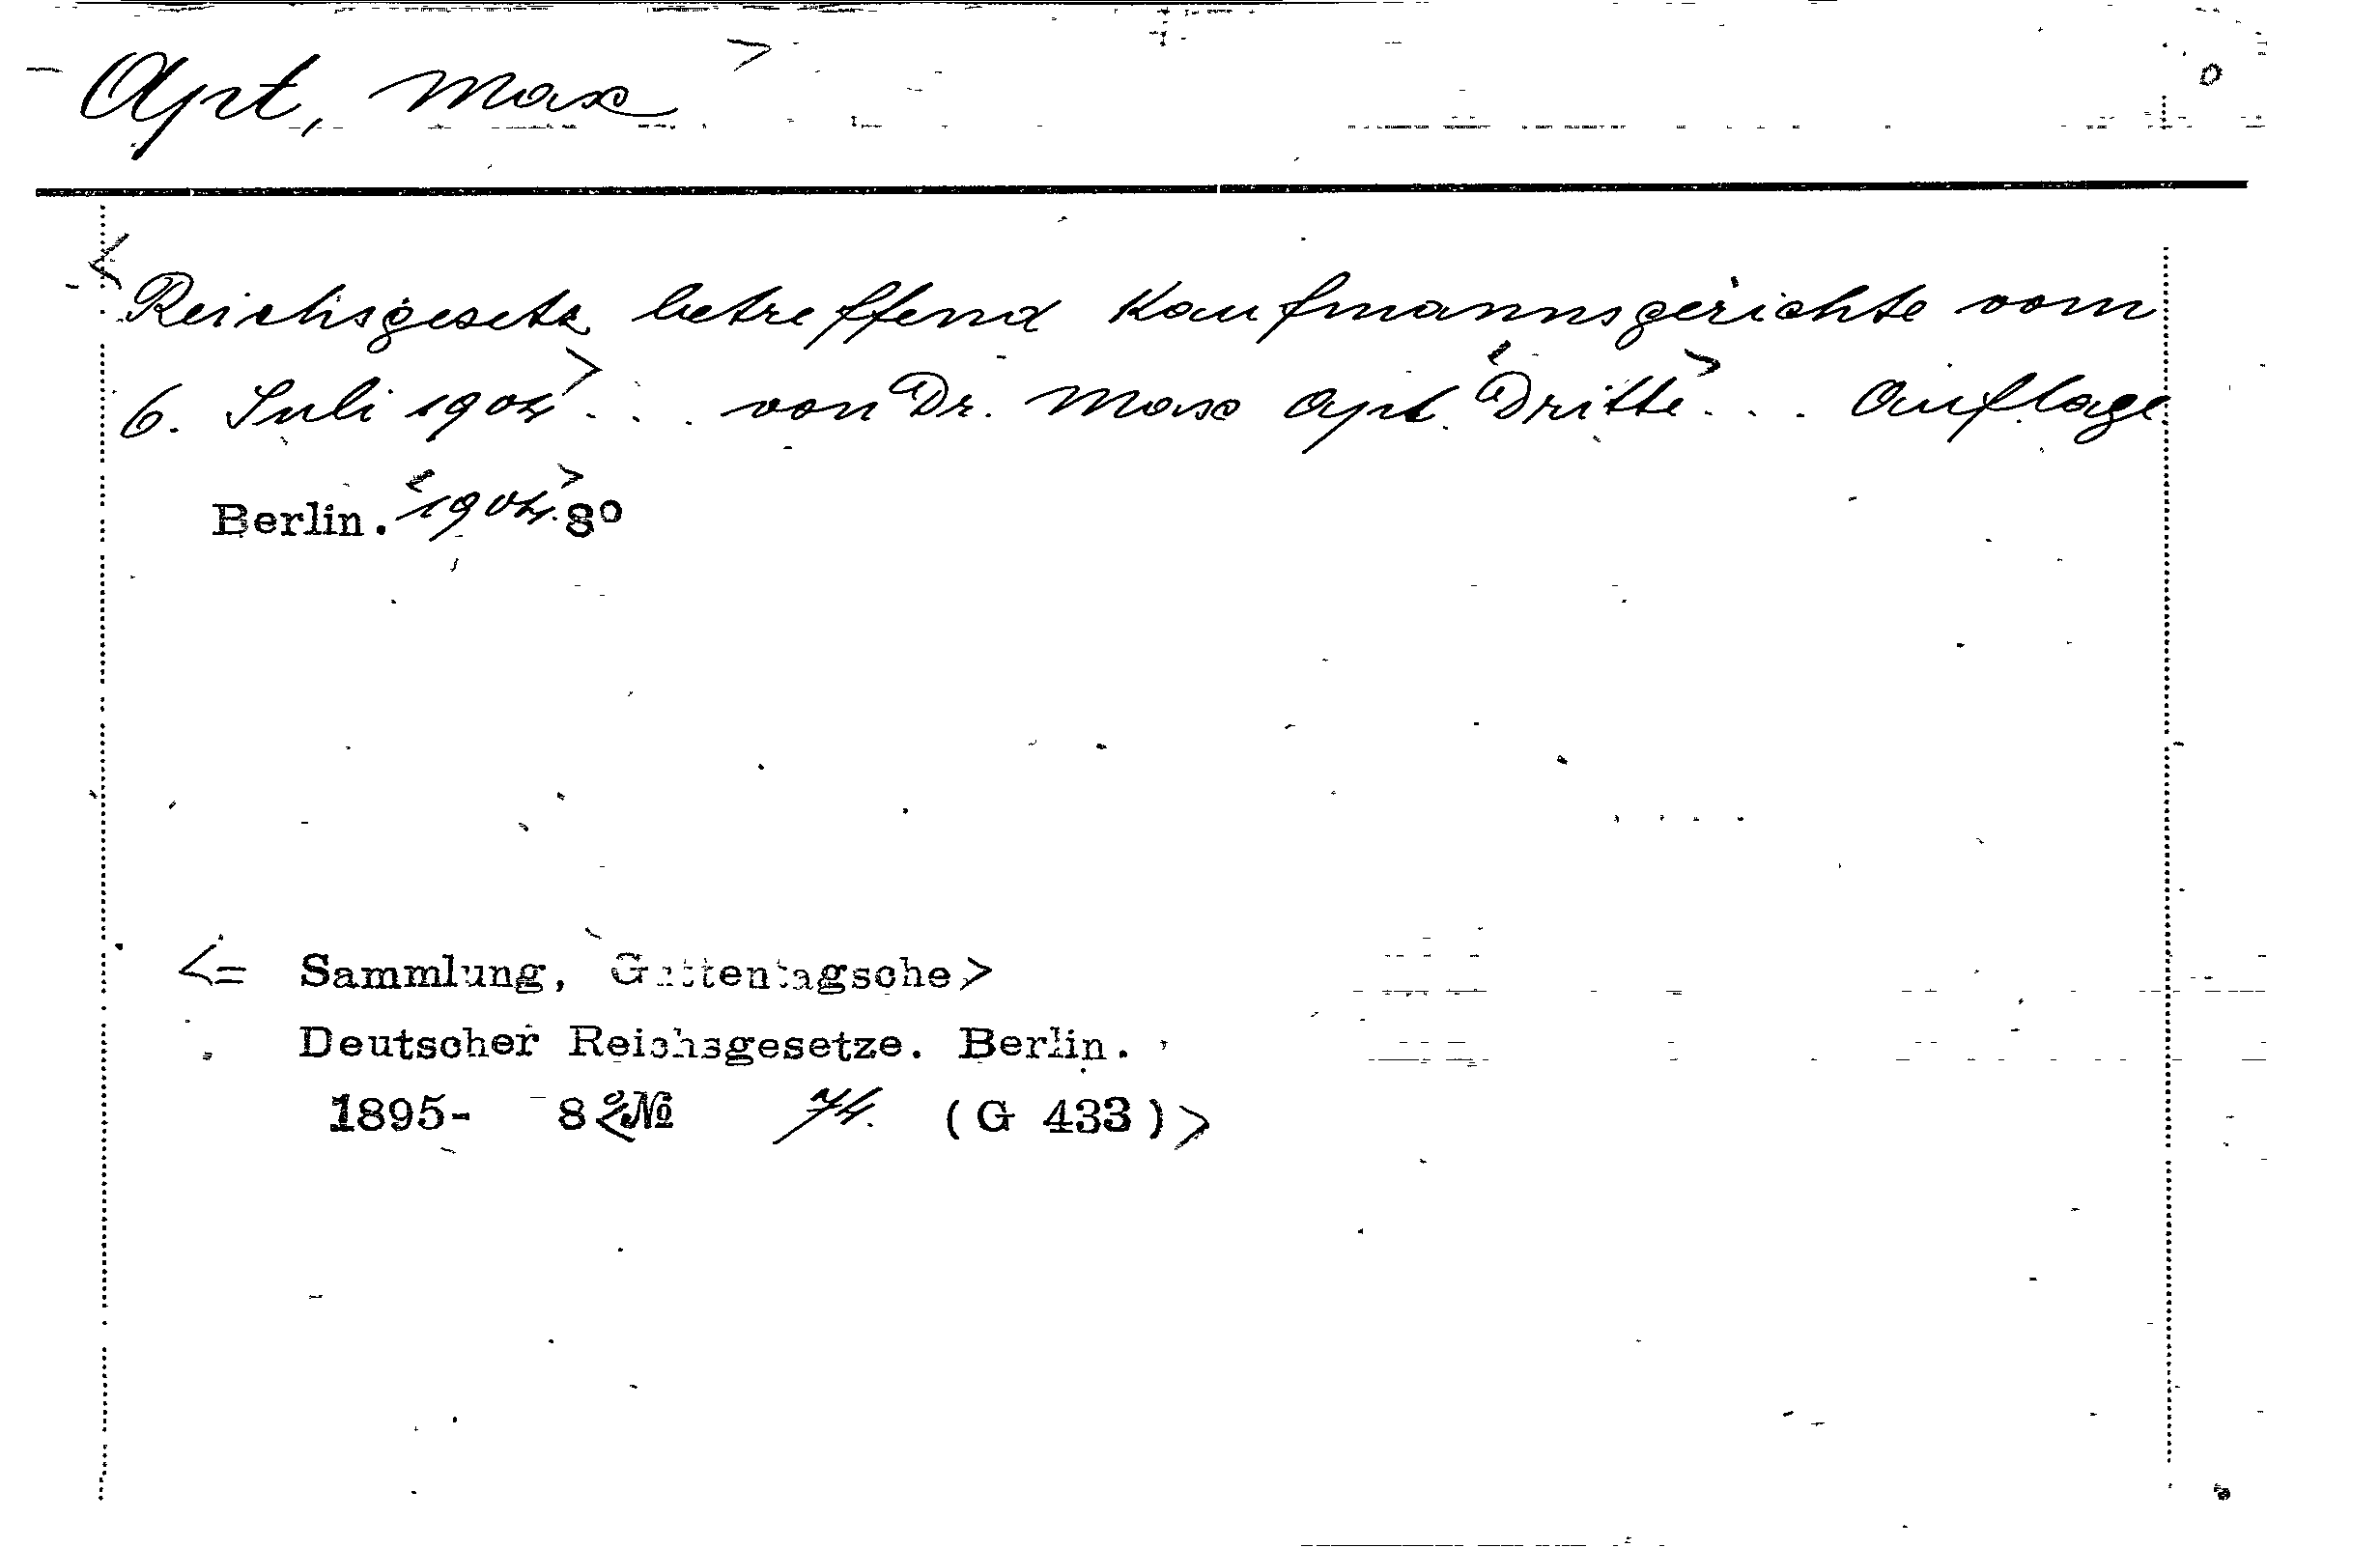 Apt, Max >
< Reichsgesetz betreffend Kaufmannsgerichte vom
6. Juli 1904> . . . von Dr. Max Apt. <Dritte> . . . Auflage
Berlin. <1904.> 8°
<= Sammlung, Guttentagsche>
Deutscher Reichsgesetze. Berlin.
1895- 8° <№ 74. (G 433)>